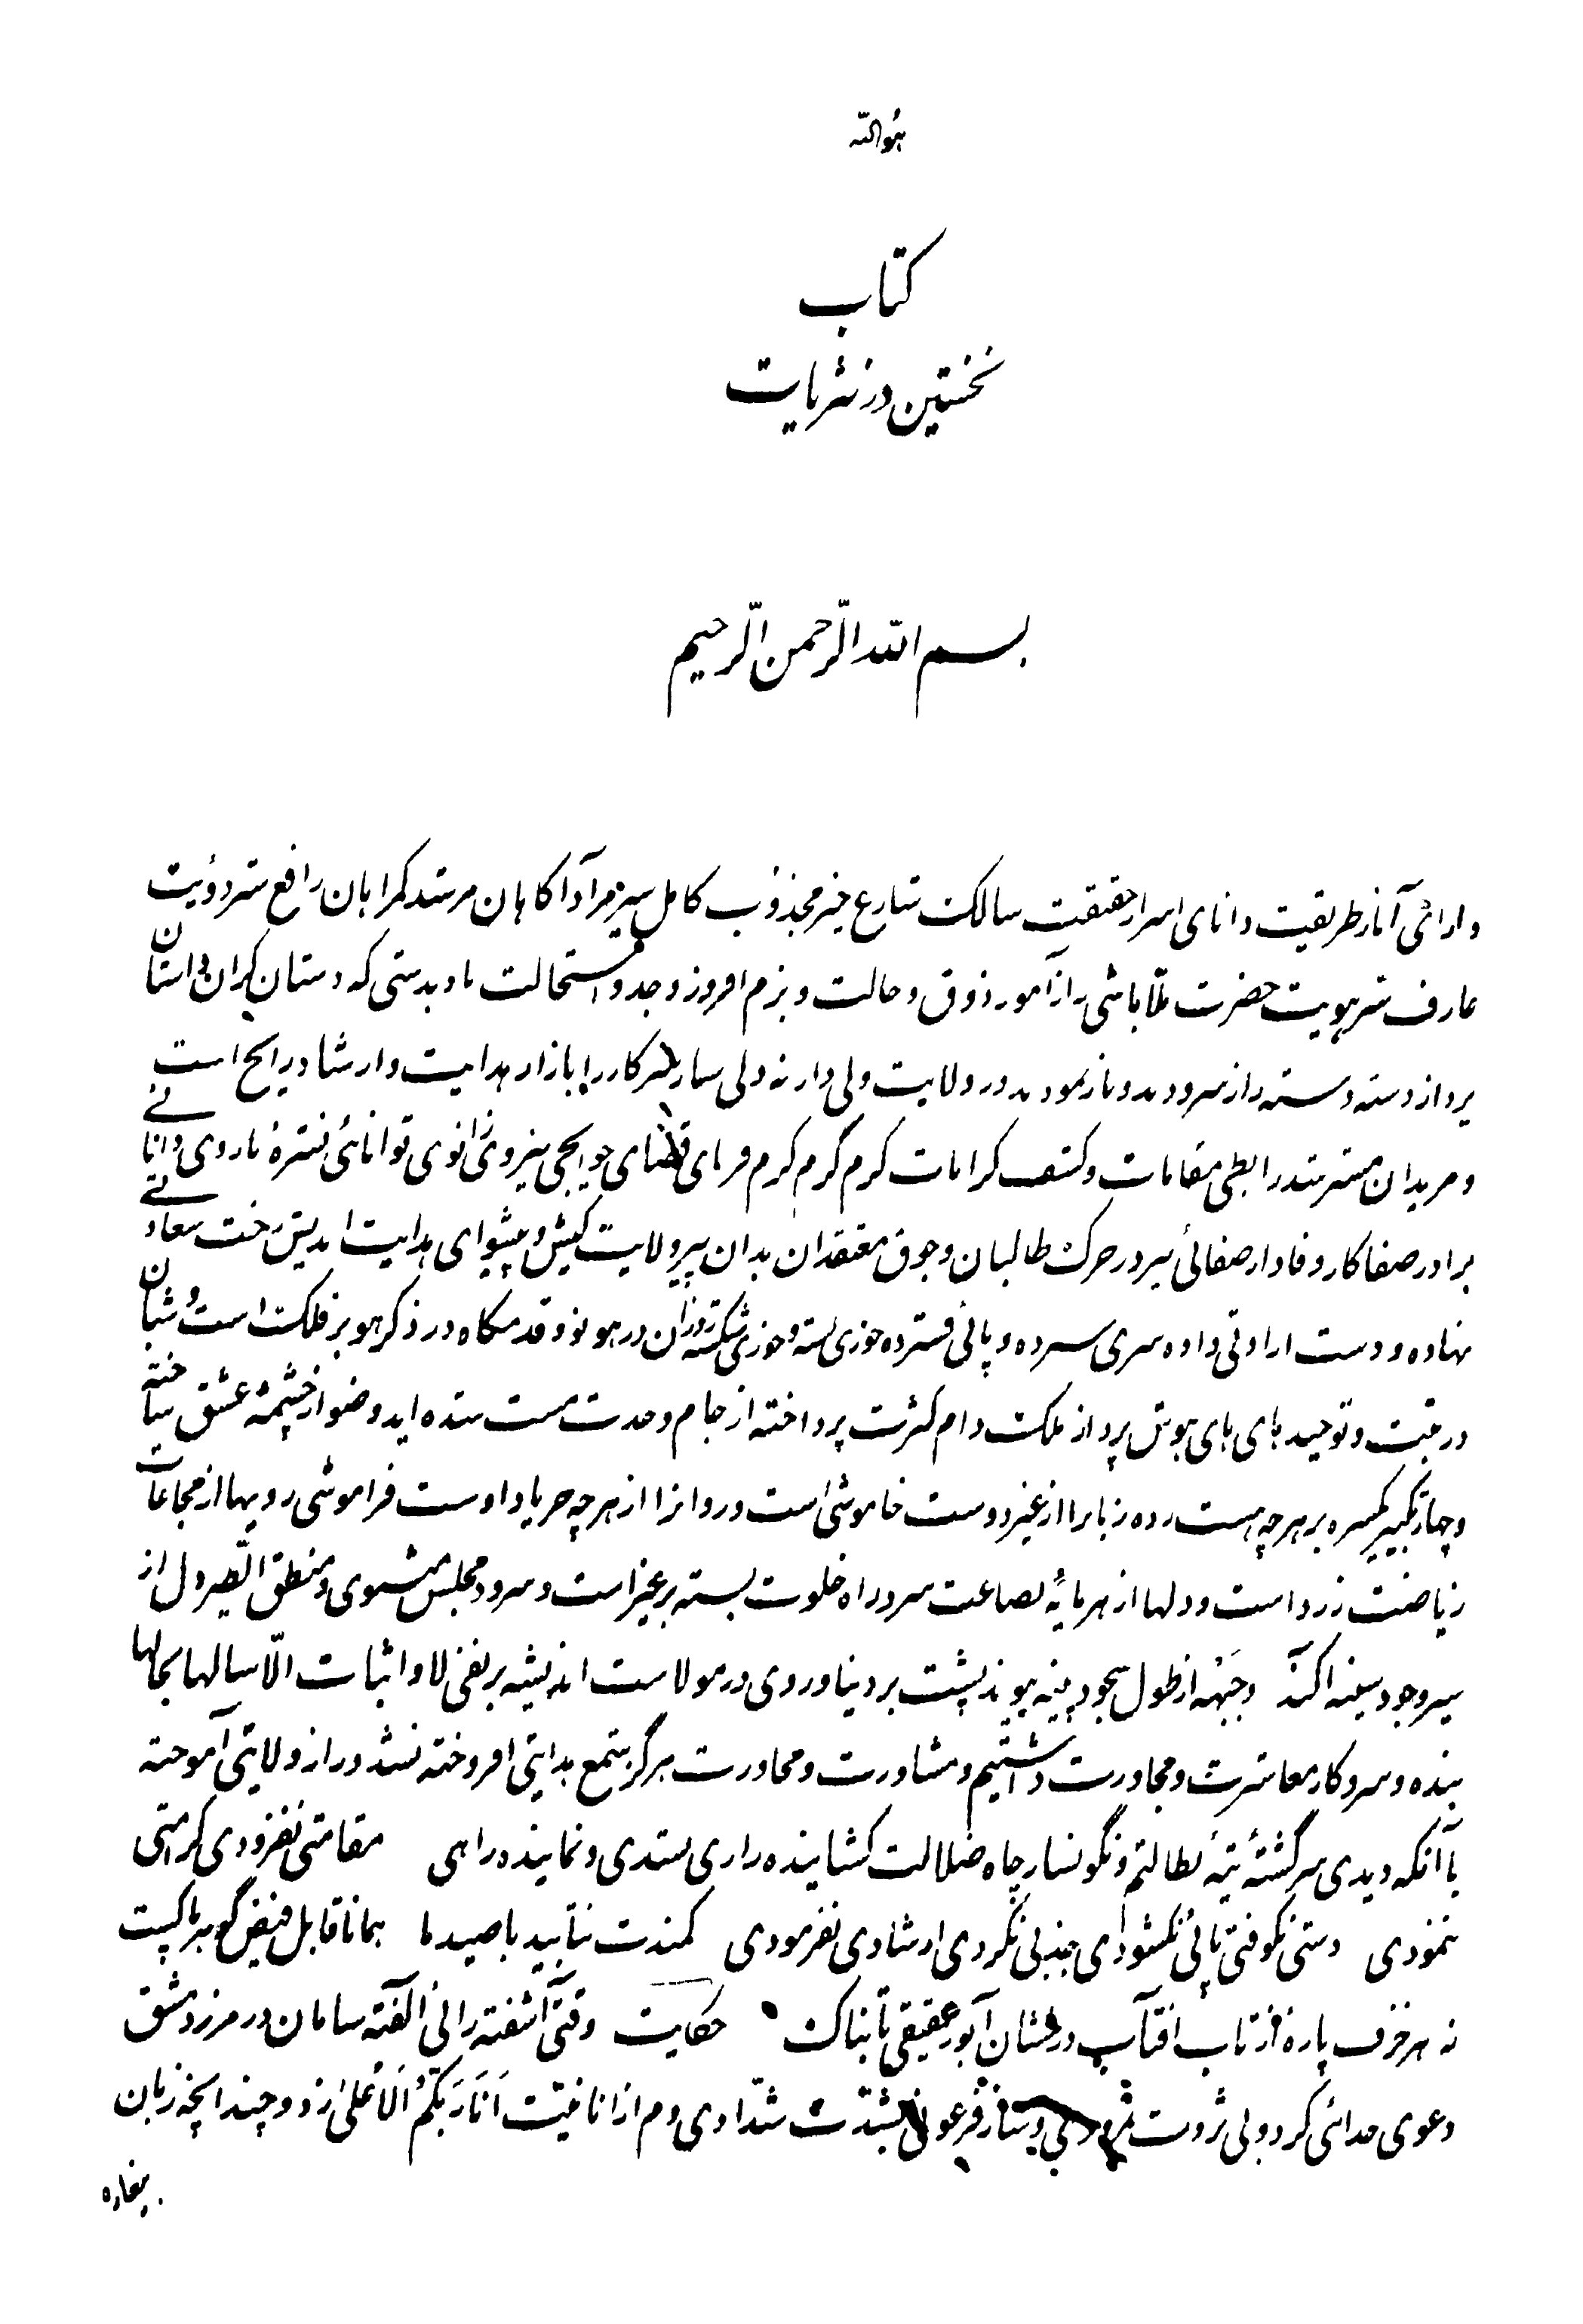 هوالله
کتاب
نخستین در نثریات
بسم الله الرّحمن الرّحیم
دارائی آثار طریقت دانای اسرار حقیقت سالک شارع خیر مجذوب کامل سیر مرآد آکاهان مرشد کمراهان رافع شر دوئیت
عارف سر هویت حضرت ملّا باشی راز آموز ذوق و حالت و بزم افروز وجد و استحالت باد بدستی که دستان کران داستان
پرداز دسته دسته راز سرودند و باز نمودند در ولایت ولی دار نه ولی سار سرکار را بازار هدایت و ارشاد رایج است
و مریدان مسترشد رابطی مقامات و کشف کرامات کرم گرم کرم فرمای قضای حوایجی نیروی زانوی توانائی نشتره باروی دانائی
برادر صفا کار وفادار صفائی سر در حرک طالبان و جوق معتقدان بدان پیر ولایت کیش و پیشوای هدایت اندیش رخت سعادتی
نهاده و دست ارادتی داده سری سپرده و پائی فشرده حوزی بسته و حوزی شکسته روزان در هو نو و قدمگاه در ذکر هو بر فلک است و شبان
در تبت و توحید های های هوش پرداز ملک دام کثرت پرداخته از جام وحدت مست شده اید وضو از چشمه عشق ساخته
و چار تکبیر یکسره بر هرچه هست زده زبانرا از غیر دوست خاموشی است و روانرا از هرچه جز یاد اوست فراموشی رویها از مجاعات
ریاضت زرد است و دلها از هر مایه بضاعت سرد راه خلوت بسته بر غیر است و سرود مجلس مثنوی و منطق الطیر دل از
سر وجود سینه اکند و جبهه از طول سجود پینه پیوند پشت بر دنیا و روی در مولاست اندیشه بر نفی لا و اثبات الّا سالها بجالها
بنده و سروکار معاشرت و مجاورت داشتیم و مشاورت و محاورت هرگز شمع هدایتی افروخته نشد و راز ولایتی آموخته
با آنکه دیدی سرگشتهٔ تیه بطالتم و نگونسار چاه ضلالت کشاینده رازی نشدی و نماینده راهی مقامتی نفزودی کرامتی
ننمودی دستی نکوفتی پائی نکشودی جذبی نکردی ارشادی نفرمودی کمندت نتابید با صید ما همانا قابل فیض گوهر پاکیست
نه هر خزف پاره از تاب افتاب درخشان آید و عقیقی تابناک حکایت وقتی آشفته رائی آلفته سامان در مرز دمشق
دعوی خدائی کرد و بی ثروت نمرودی و ساز فرعونی بشدّت شدّادی دم از انانیت اَنَا رَبُّکُمُ الْاَعْلی زد و چندانچه زبان
بیغاره